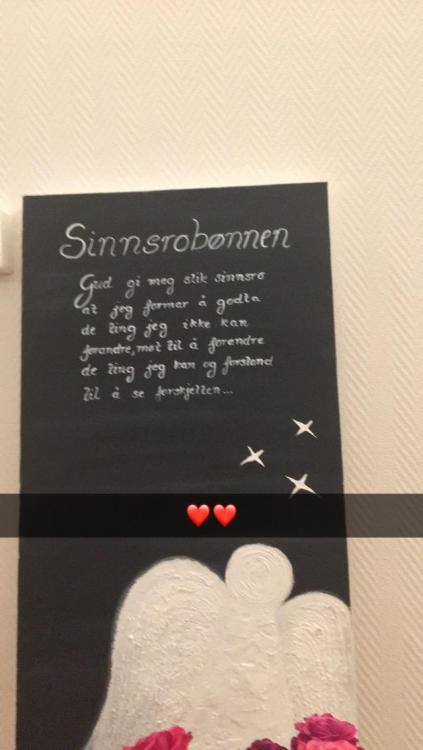 Sinnsrobønnen
Gud gi meg slik sinnsro
at jeg formår å godta
de ting jeg ikke kan
forandre, mot til å forandre
de ting jeg kan og forstand
til å se forskjellen...
❤️❤️